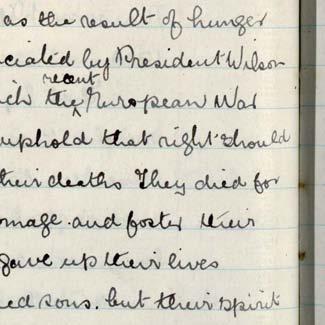 as the result of hunger
ciated by President Wilson
recent
ich the European War
uphold that right should
their deaths They died for
omage. and foster their
gave up their lives
ed sons. but their spirit